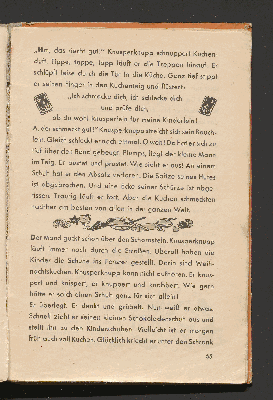 „Hm, das riecht gut!“ Knusperknupp schnuppert Kuchen
duft. Hupp, trapp, tupp läuft er die Treppen hinauf. Er
schlüpft leise durch die Tür in die Küche. Ganz tief stippt
er seinen Finger in den Kuchenteig und flüstert:
„Ich schmecke dich, ich schlecke dich
und prüfe dich,
ob du wohl knusperfein für meine Kinderlein!“
Ah, der schmeckt gut!“ Knusperknupp streicht sich sein Bäuch-
lein. Gleich schleckt er noch einmal. O weh! Da hat er sich zu
tief über den Rand gebeugt. Plumps, liegt der kleine Mann
im Teig. Er pustet und prustet. Wie sieht er aus! An einem
Schuh hat er den Absatz verloren. Die Spitze seines Hutes
ist abgebrochen. Und eine Ecke seiner Schürze ist abge-
rissen. Traurig läuft er fort. Aber die Kuchen schmeckten
nachher am besten von allen in der ganzen Welt.
Der Mond guckt schon über den Schornstein. Knusperknupp
läuft immer noch durch die Straßen. Überall haben die
Kinder die Schuhe ins Fenster gestellt. Darin sind Weih-
nachtskuchen. Knusperknupp kann nicht aufhören. Er knus-
pert und knispert, er knuppert und knabbert. Wie gern
hätte er solch einen Schuh ganz für sich allein!
Er überlegt. Er denkt und grübelt. Nun weiß er etwas.
Schnell zieht er seinen kleinen Schokoladenschuh aus und
stellt ihn zu den Kinderschuhen. Vielleicht ist er morgen
früh auch voll Kuchen. Glücklich kriecht er unter den Schrank
55